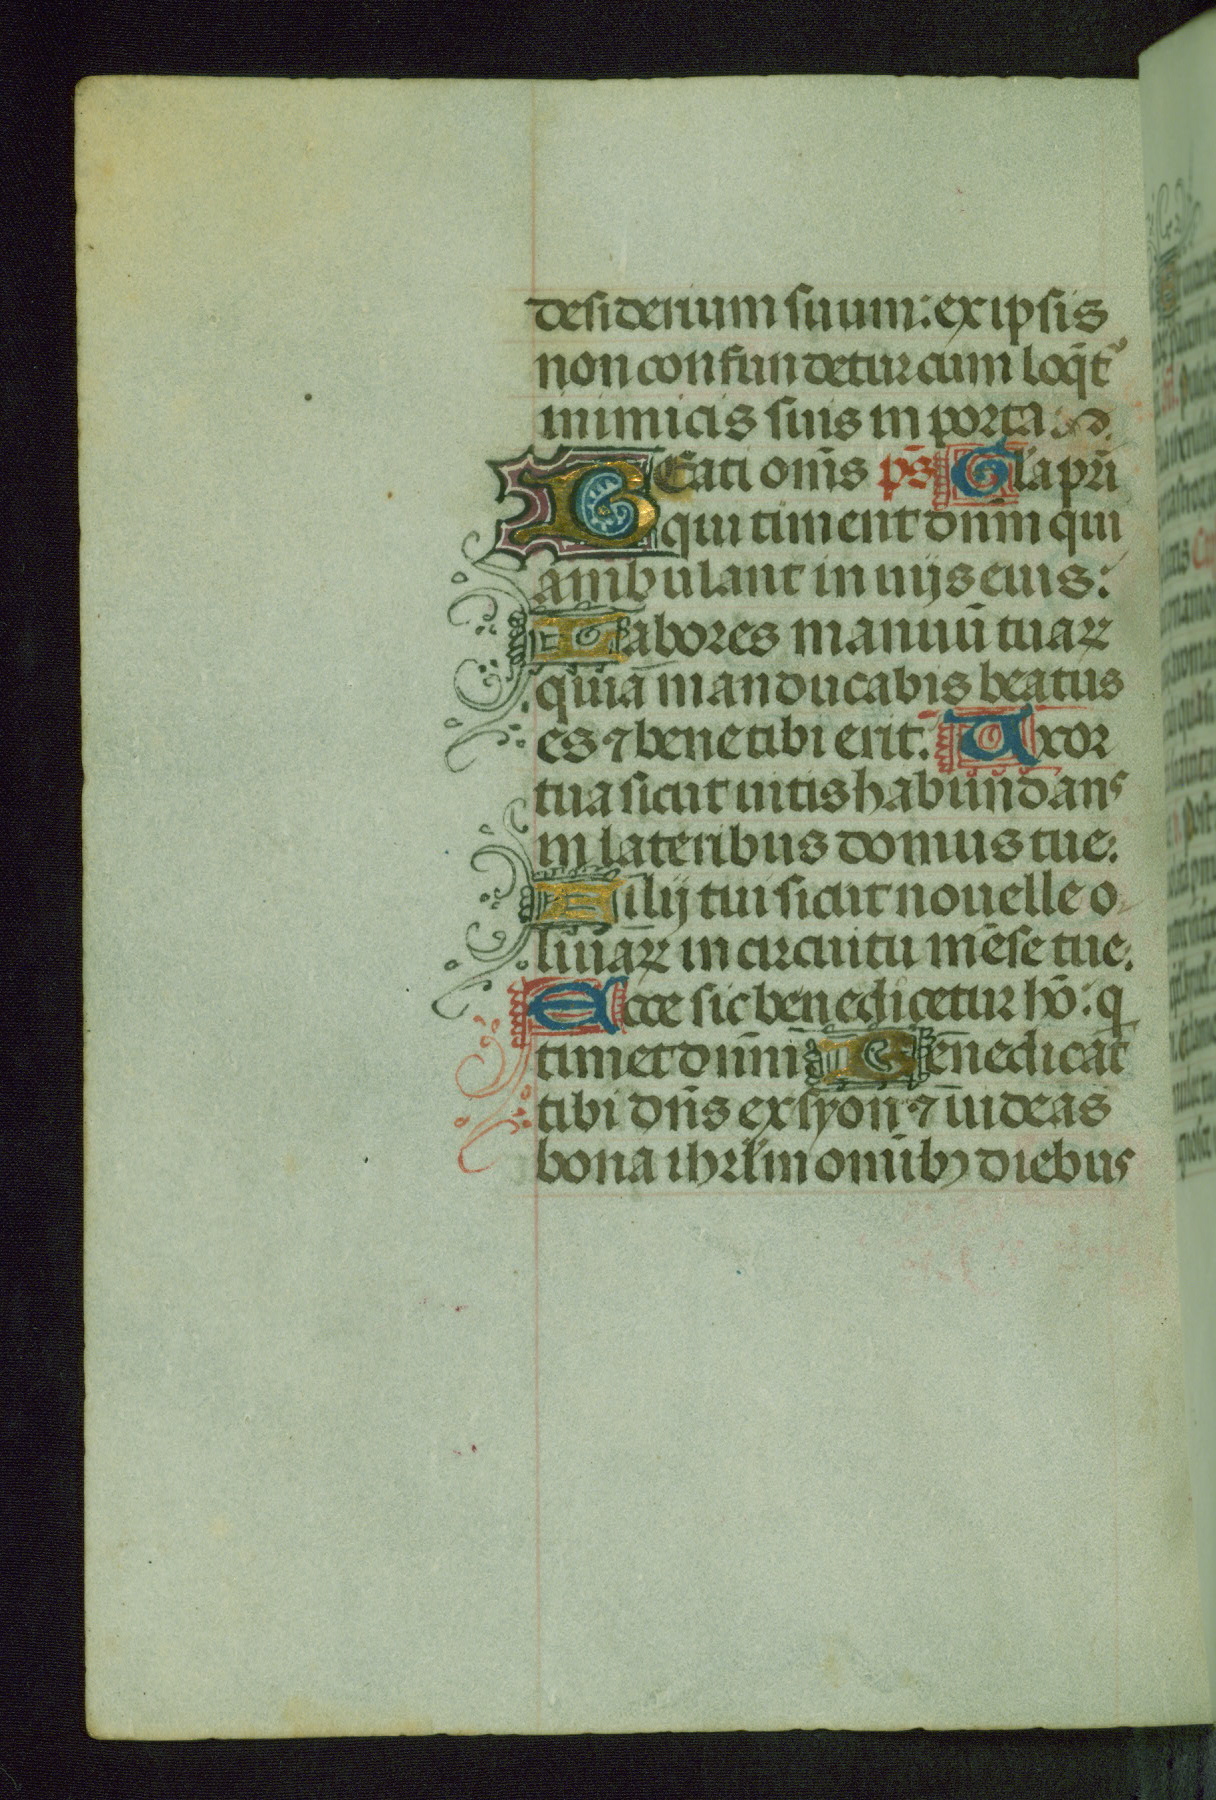 desiderium suum: ex ipsis
non confundetur cum loqt̄ᷣ
inimicis suis in porta.
BEati om̄s ps̄ Gl'a prī
qui timent dn̄m qui
ambulant in uijs eius:
Labores manuū tuaꝝ
quia māducabis beatus
es ⁊ bene tibi erit. Uxor
tua sicut uitis habundans
in lateribus domus tue.
Filij tui sicut nouelle o
liuaꝝ in circuitu mēse tue.
Ecce sic benedicetur hō: q
timet dn̄m Benedicat
tibi dn̄s ex syon ⁊ uideas
bona ihrl'm om̄ibꝫ diebus